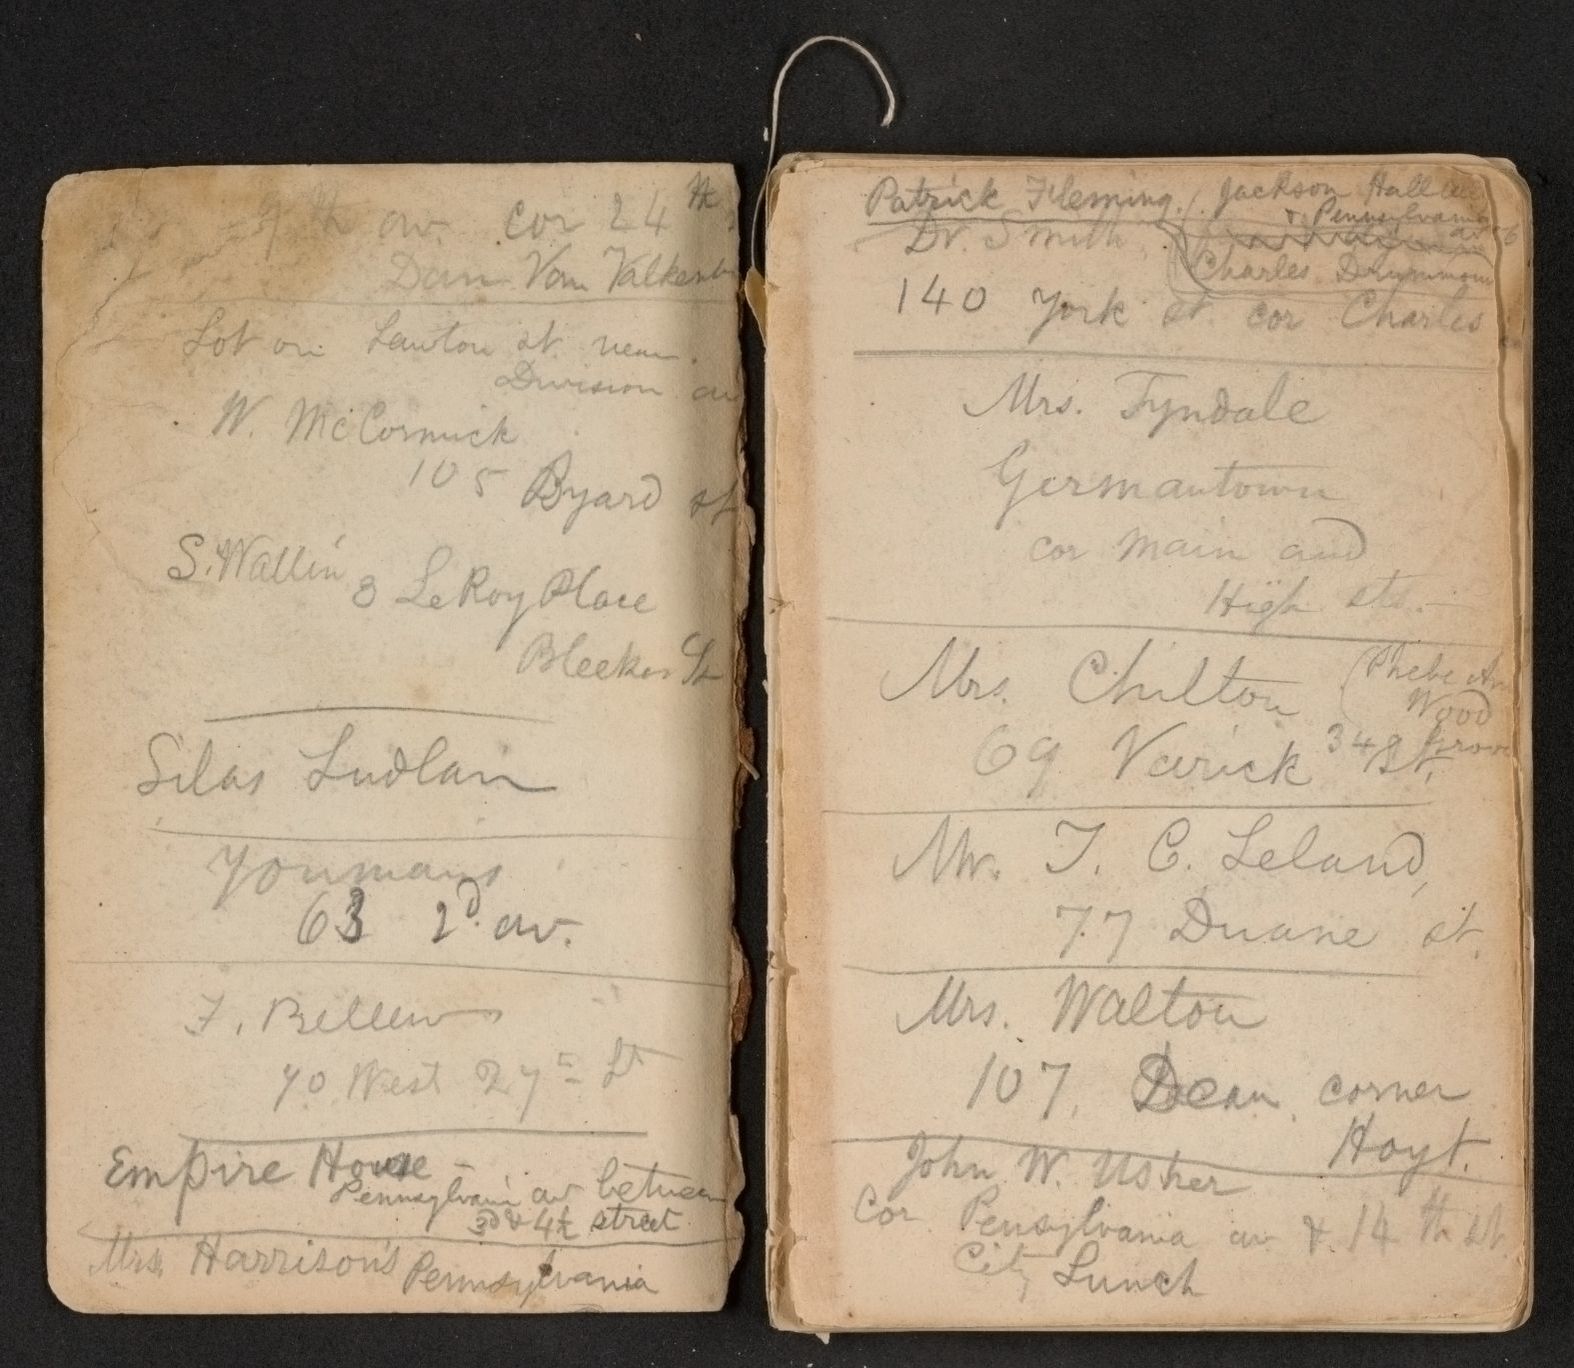 9th av. cor 24th
Dan Van Valkenb
Lot on Lawton st. near
Division av
W. McCormick
105 Byard st
S. Wallin 3 LeRoy Place
Bleeker St
Silas Ludlam
Youmans
63 2d. av.
F. Bellew
70 West 27th St
Empire House –
Pennsylvani av between
3d & 4½ street
Mrs. Harrison's Pennsylvania
Patrick Fleming. Jackson Hall
& Pennsylvania
av
Dr. Smith
Charles Drummond
140 York st. cor Charles
Mrs. Tyndale
Germantown
cor main and
High sts. –
Mrs. Chilton (Phebe An
Wood
69 Varick st. 348 Grove
Mr. T. C. Leland,
77 Duane st.
Mrs. Walton
107, Dean, corner
Hoyt.
John W. Usher
Cor Pensylvania av & 14th st.
City Lunch